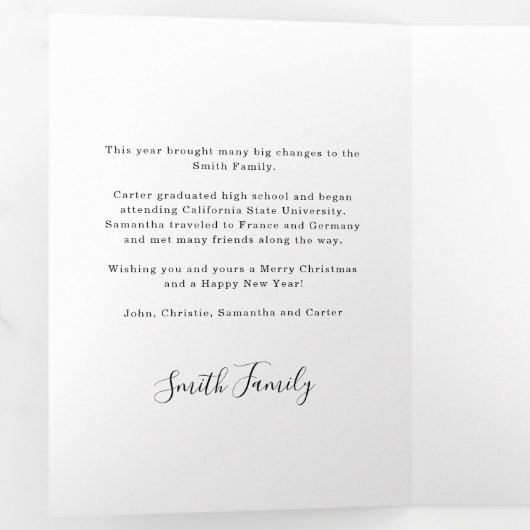 This year brought many big changes to the
Smith Family.
Carter graduated high school and began
attending California State University.
Samantha traveled to France and Germany
and met many friends along the way.
Wishing you and yours a Merry Christmas
and a Happy New Year!
John, Christie, Samantha and Carter
Smith Family